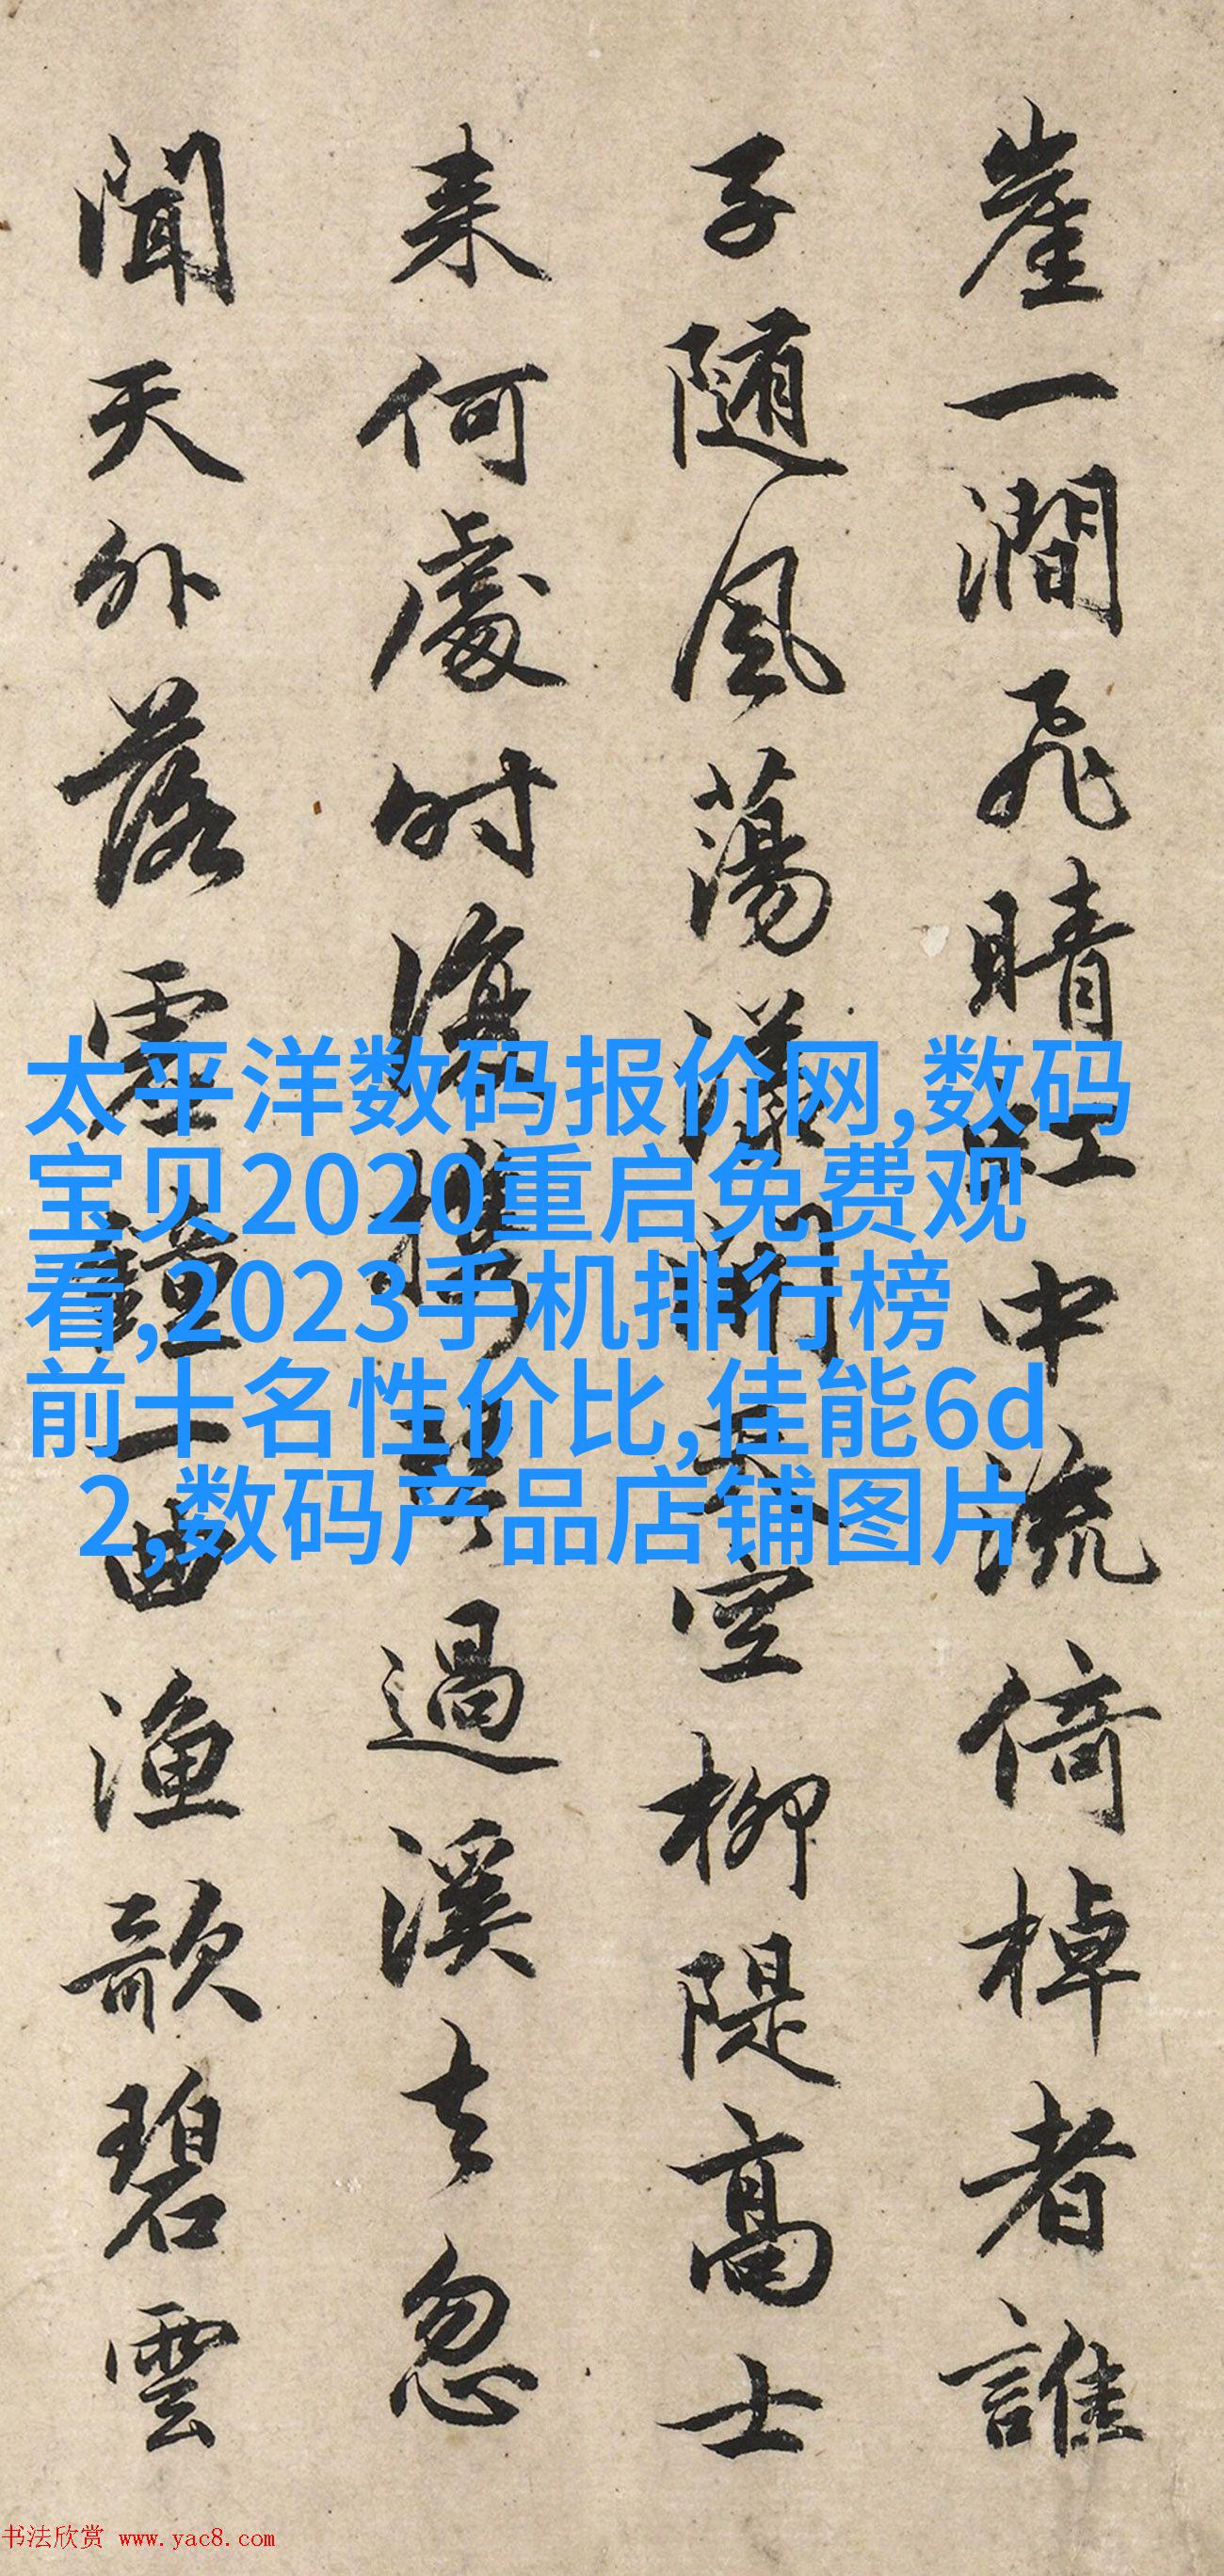 崖一澗飛晴虹中流倚棹者誰
子随風蕩漾空柳隄高士
来何處时復携琴過溪去忽
聞天外落鐘一曲漁歌碧雲
太平洋数码报价网,数码
宝贝2020重启免费观
看,2023手机排行榜
前十名性价比,佳能6d
2,数码产品店铺图片
书法欣赏 www.yac8.com